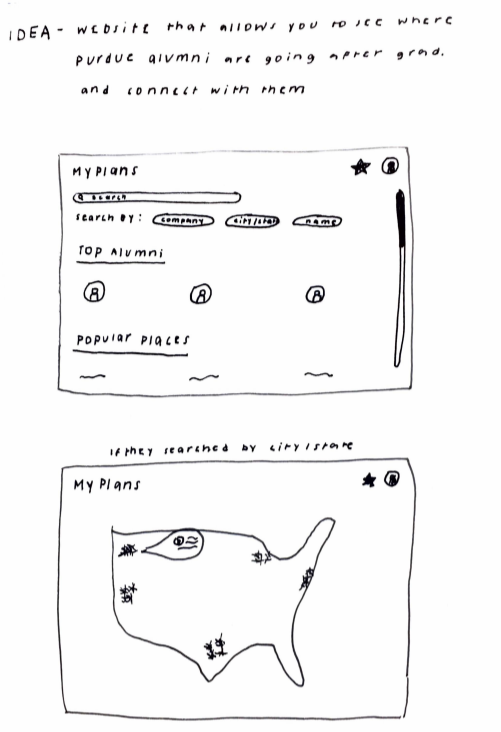 IDEA - website that allows you to see where
purdue alumni are going after grad.
and connect with them
My Plans
search
search by: company city/state name
Top Alumni
Popular Places
if they searched by city/state
My Plans